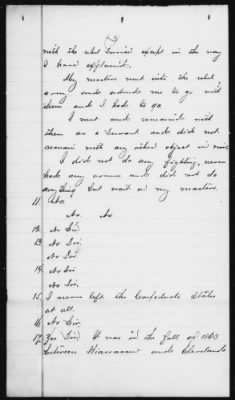 with the rebel Service except in the way
I have explained.
My masters went into the rebel
army and ordered me to go with
them and I had to go.
I went and remained with
them as a Servant and did not
remain with any other object in view
I did not do any fighting, never
had any arms and did not do
anything but wait on my masters.
11. No.
No. No
12. No Sir.
13. No Sir.
No Sir.
14. No Sir
No Sir.
15. I never left the Confederate States
at all.
16. No Sir.
17. Yes Sir. It was in the fall of 1863
between Hiawassee and Cleveland